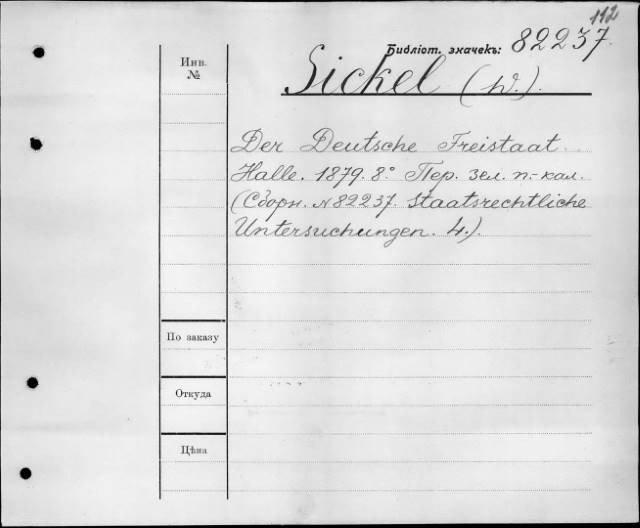 112
Библіот. значекъ: 82237.
Инв.
№
Sickel (W.).
Der Deutsche Freistaat.
Halle. 1879. 8° Пер. зел. п.-кал.
(Сборн. № 82237. Staatsrechtliche
Untersuchungen. 4.).
По заказу
Откуда
Цѣна